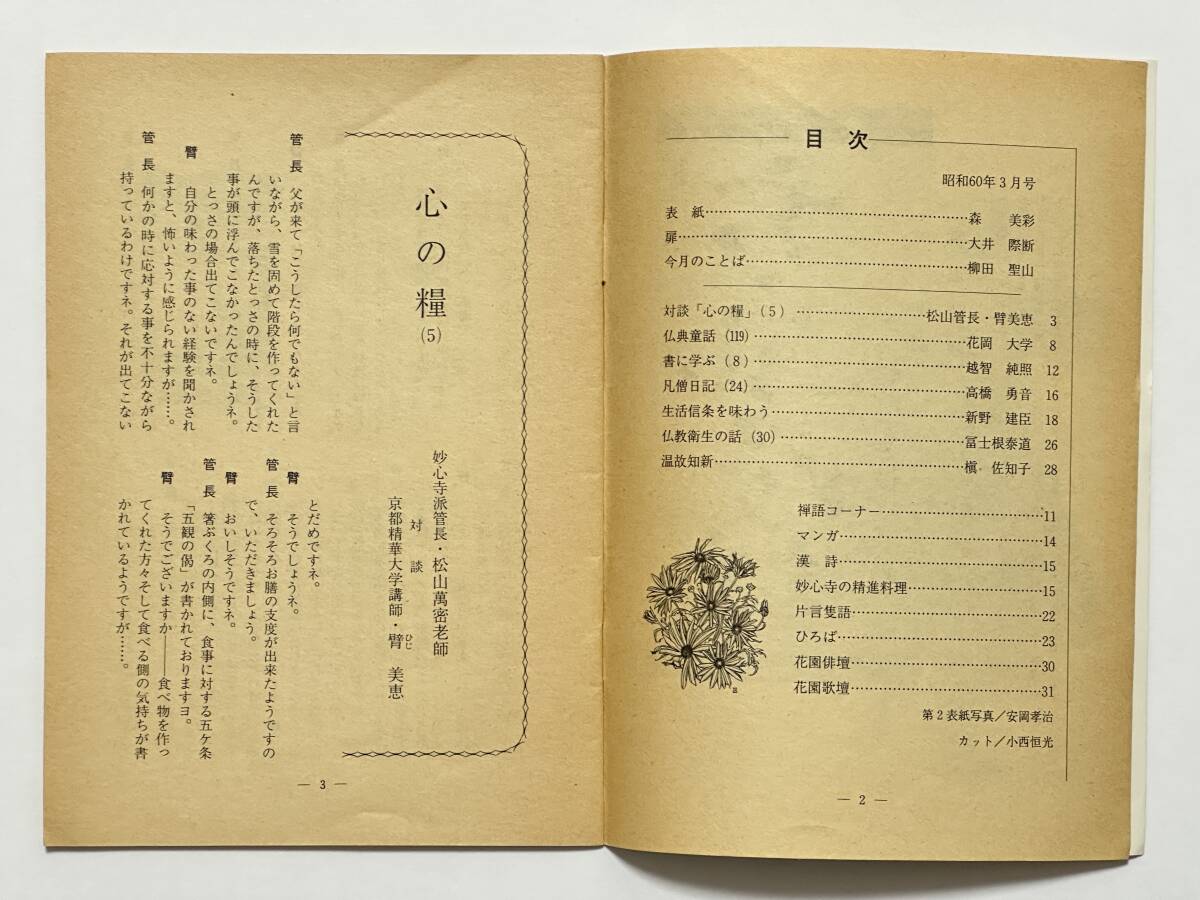 目次
昭和60年3月号
表紙……森 美彩
扉……大井 際断
今月のことば……柳田 聖山
対談「心の糧」(5)……松山管長・臂美恵 3
仏典童話(119)……花岡 大学 8
書に学ぶ(8)……越智 純照 12
凡僧日記(24)……高橋 勇音 16
生活信条を味わう……新野 建臣 18
仏教衛生の話(30)……冨士根泰道 26
温故知新……槇 佐知子 28
禅語コーナー……11
マンガ……14
漢詩……15
妙心寺の精進料理……15
片言隻語……22
ひろば……23
花園俳壇……30
花園歌壇……31
第2表紙写真/安岡孝治
カット/小西恒光
― 2 ―
心の糧
(5)
妙心寺派管長・松山萬密老師
対談
京都精華大学講師・臂 美恵
ひじ
管長 父が来て「こうしたら何でもない」と言
いながら、雪を固めて階段を作ってくれた
んですが、落ちたとっさの時に、そうした
事が頭に浮んでこなかったんでしょうネ。
とっさの場合出てこないですネ。
臂 自分の味わった事のない経験を聞かされ
ますと、怖いように感じられますが……。
管長 何かの時に応対する事を不十分ながら
持っているわけですネ。それが出てこない
とだめですネ。
臂 そうでしょうネ。
管長 そろそろお膳の支度が出来たようですの
で、いただきましょう。
臂 おいしそうですネ。
管長 箸ぶくろの内側に、食事に対する五ケ条
「五観の偈」が書かれておりますヨ。
臂 そうでございますか――食べ物を作っ
てくれた方々そして食べる側の気持ちが書
かれているようですが……。
― 3 ―